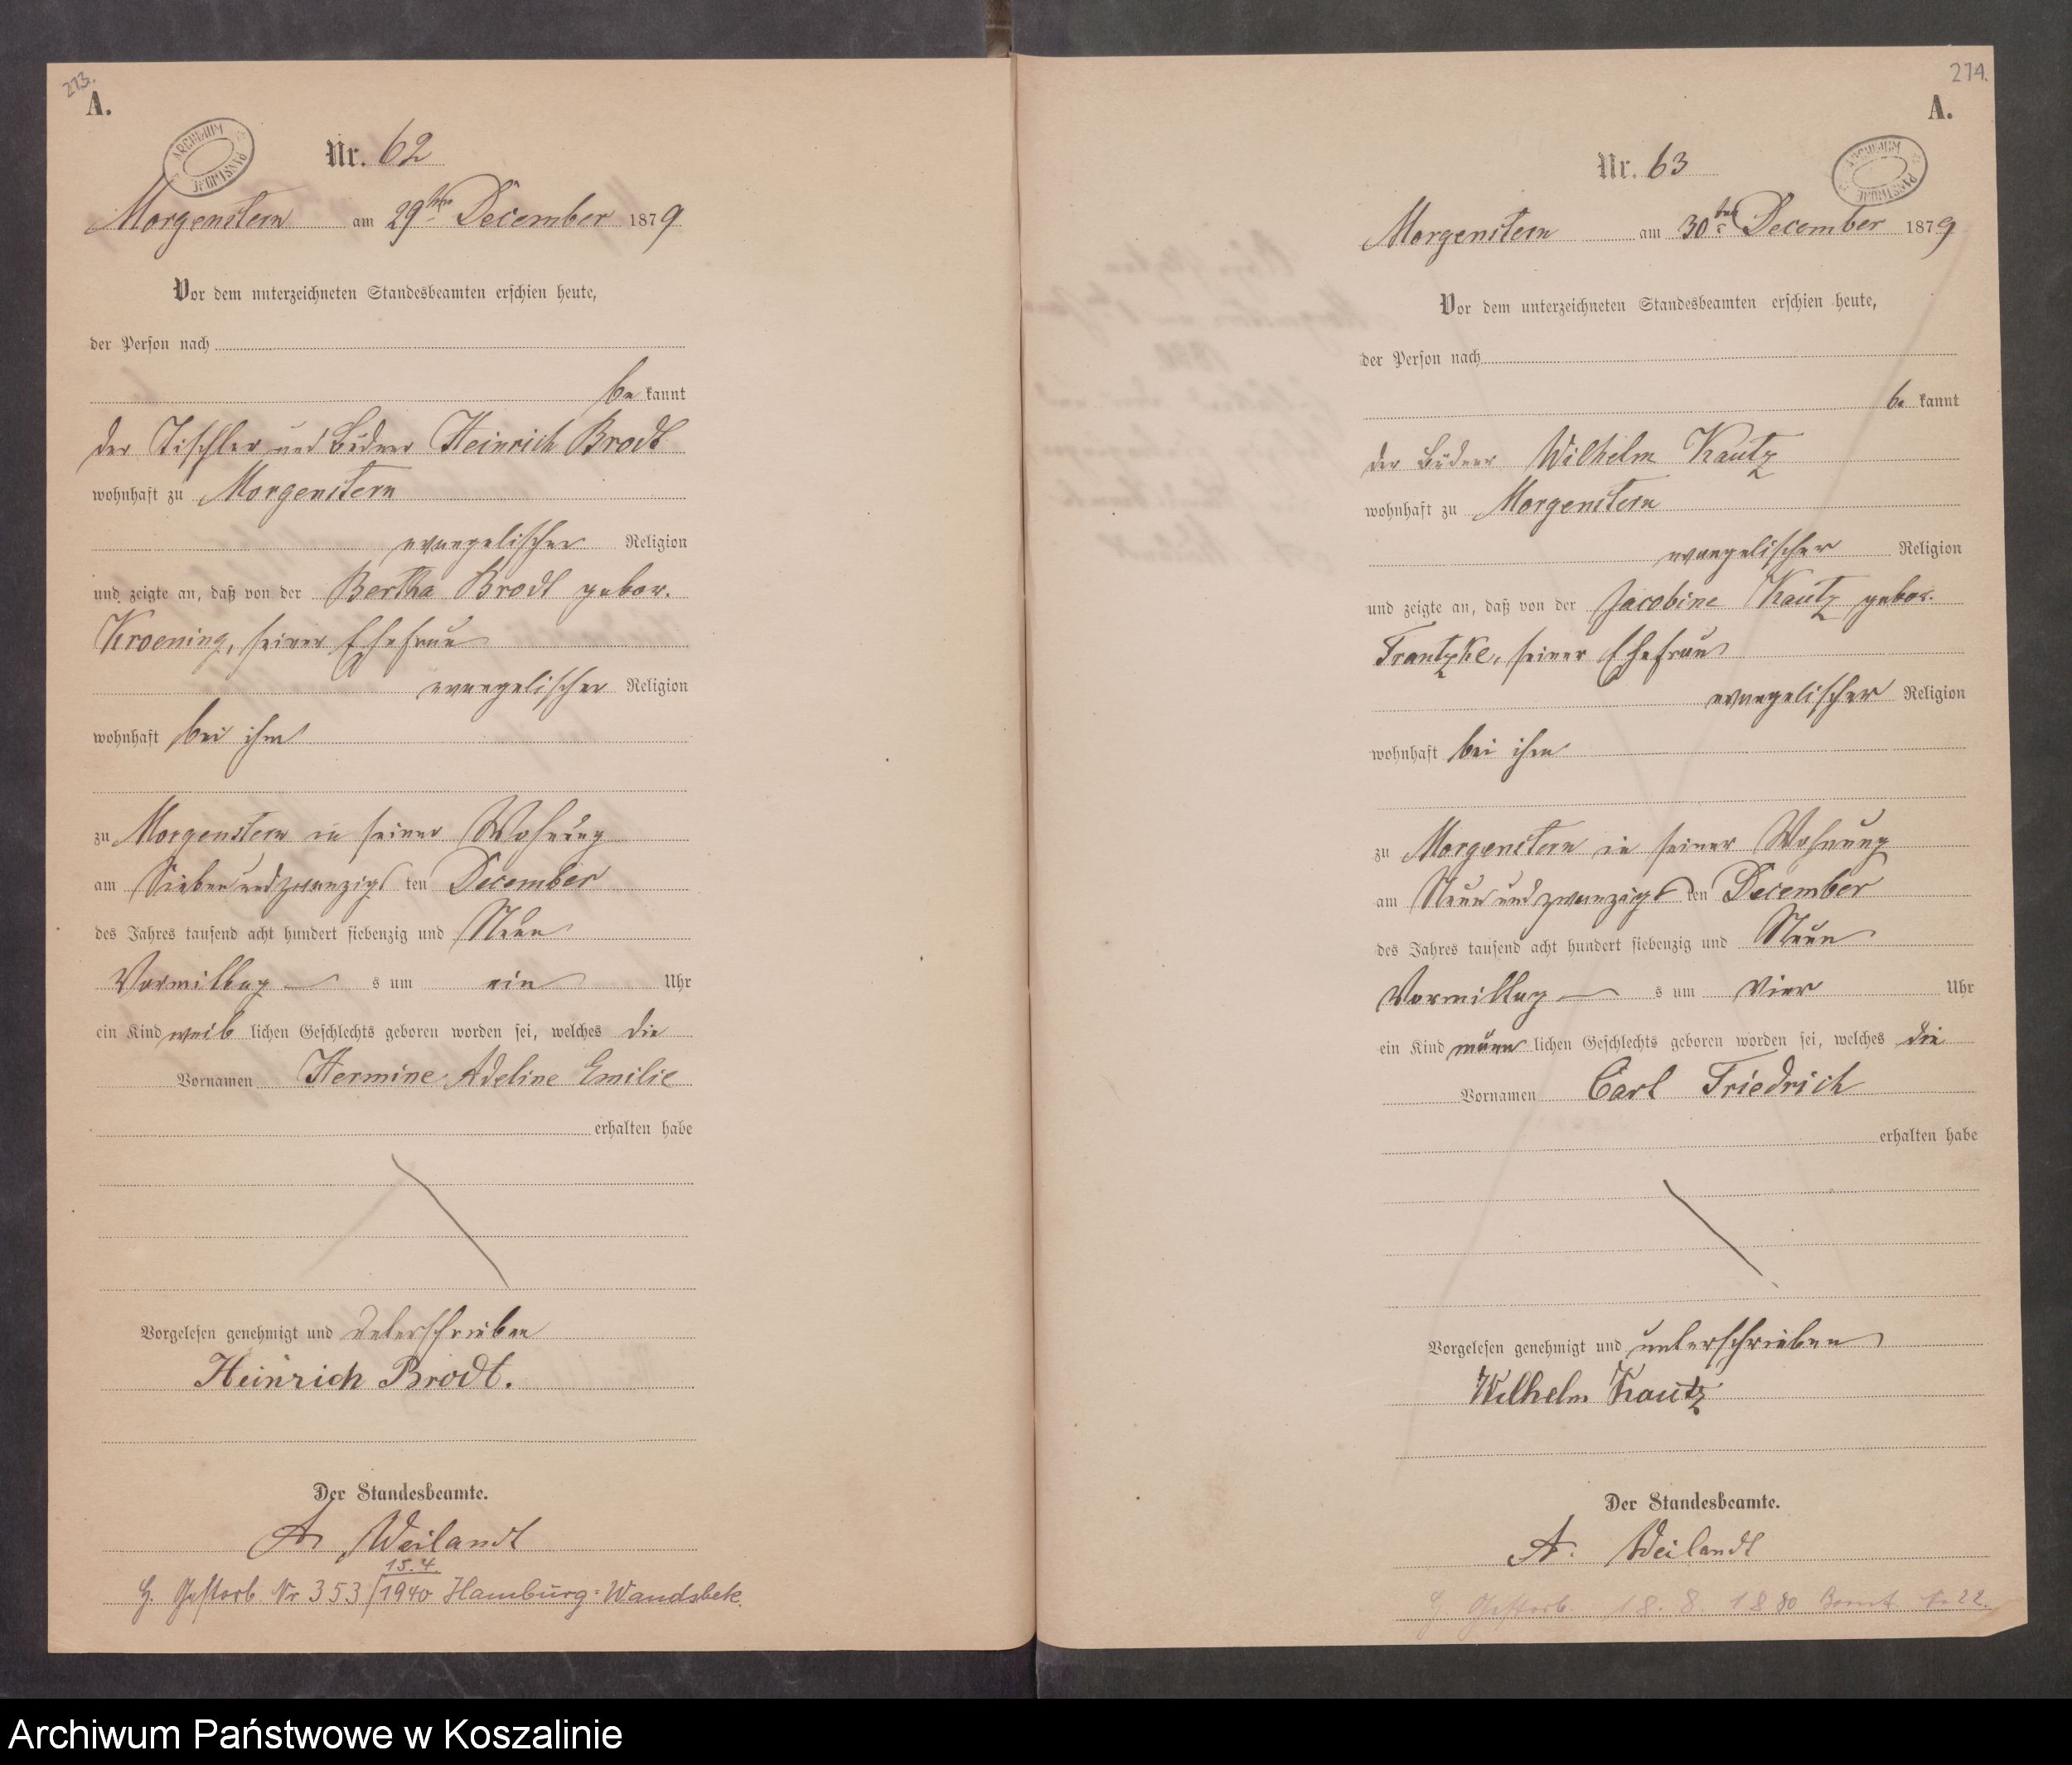 273.
A.
ARCHIWUM PAŃSTWOWE
Nr. 62
Morgenstern am 29ten December 1879
Vor dem unterzeichneten Standesbeamten erschien heute,
der Person nach
be kannt
der Tischler und Büdner Heinrich Brodt
wohnhaft zu Morgenstern
evangelischer Religion
und zeigte an, daß von der Bertha Brodt gebor.
Kroening, seiner Ehefrau
evangelischer Religion
wohnhaft bei ihm
zu Morgenstern in seiner Wohnung
am Siebenundzwanzigs ten December
des Jahres tausend acht hundert siebenzig und Neun
Vormittag s um ein Uhr
ein Kind weib lichen Geschlechts geboren worden sei, welches die
Vornamen Hermine Adeline Emilie
erhalten habe
Vorgelesen genehmigt und unterschrieben
Heinrich Brodt.
Der Standesbeamte.
A. Weilandt
15.4.
Gestorb. Nr 353/1940 Hamburg-Wandsbek.
274.
A.
ARCHIWUM PAŃSTWOWE
Nr. 63
Morgenstern am 30ten December 1879
Vor dem unterzeichneten Standesbeamten erschien heute,
der Person nach
be kannt
der Büdner Wilhelm Kautz
wohnhaft zu Morgenstern
evangelischer Religion
und zeigte an, daß von der Jacobine Kautz gebor.
Frantzke, seiner Ehefrau
evangelischer Religion
wohnhaft bei ihm
zu Morgenstern in seiner Wohnung
am Neunundzwanzigs ten December
des Jahres tausend acht hundert siebenzig und Neun
Vormittag s um Vier Uhr
ein Kind männ lichen Geschlechts geboren worden sei, welches die
Vornamen Carl Friedrich
erhalten habe
Vorgelesen genehmigt und unterschrieben
Wilhelm Kautz
Der Standesbeamte.
A. Weilandt
Gestorb. 18. 8. 1880 22.
Archiwum Państwowe w Koszalinie